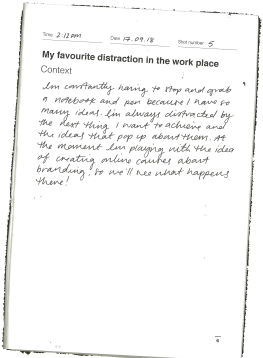 Time 2:12pm Date 17.09.18 Shot number 5
My favourite distraction in the work place
Context
I'm constantly having to stop and grab
a notebook and pen because I have so
many ideas. I'm always distracted by
the next thing I want to achieve and
the ideas that pop up about them. At
the moment I'm playing with the idea
of creating online courses about
branding, so we'll see what happens
there!